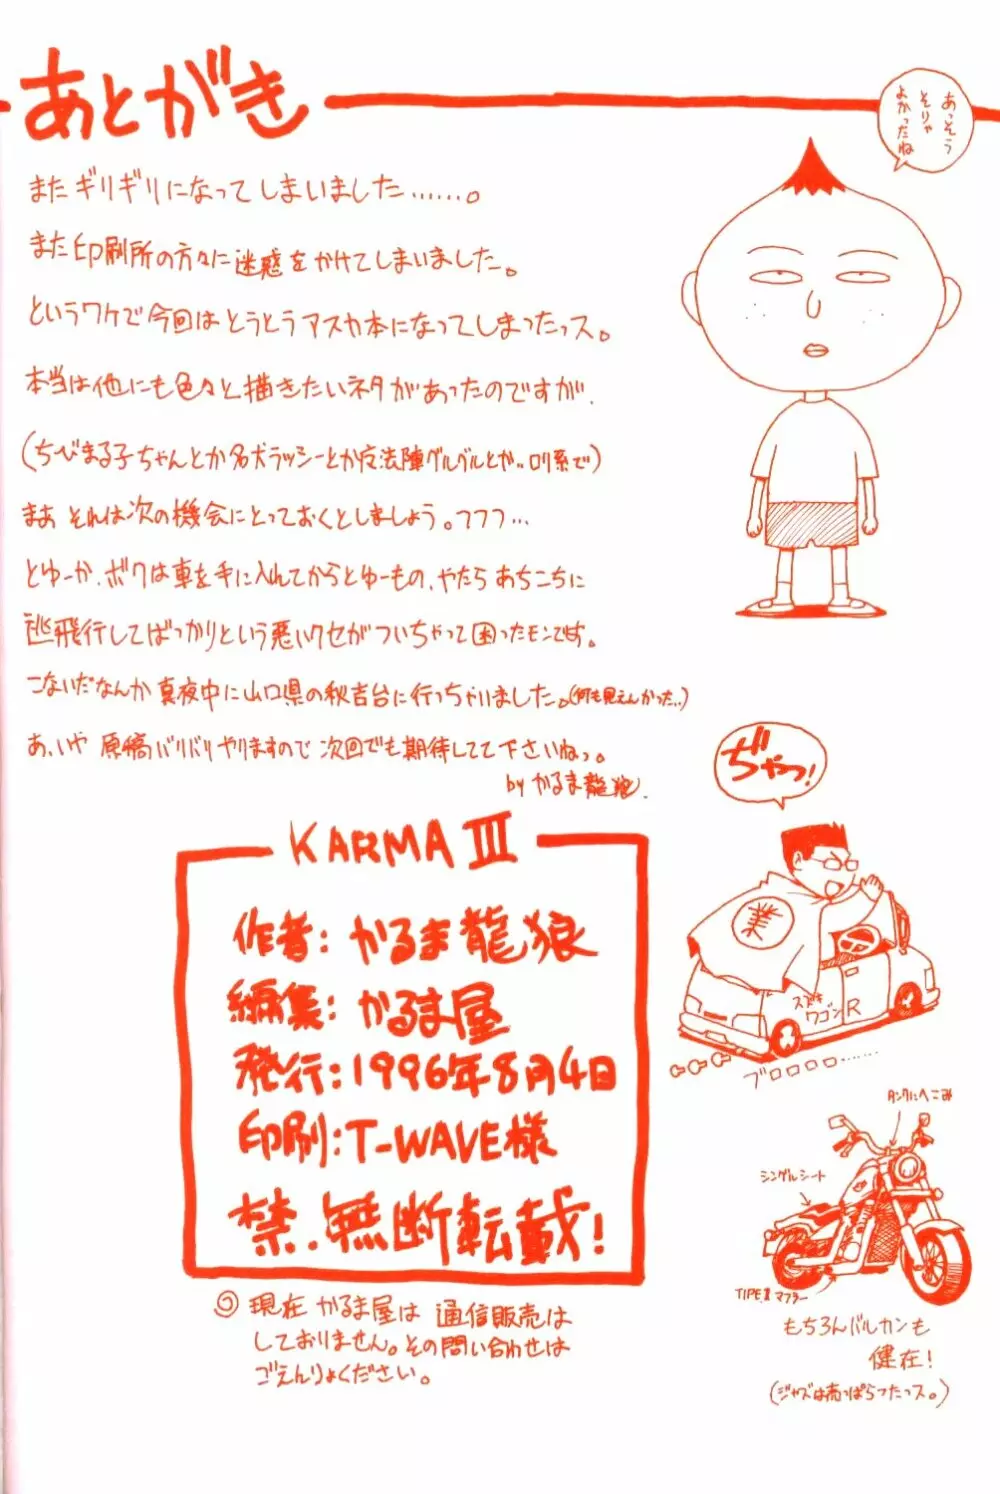 あとがき
あっそう
そりゃ
よかったね
またギリギリになってしまいました……。
また印刷所の方々に迷惑をかけてしまいました。
というワケで今回はとうとうアスカ本になってしまったっス。
本当は他にも色々と描きたいネタがあったのですが、
(ちびまる子ちゃんとか名犬ラッシーとか魔法陣グルグルとか‥ロリ系で)
まあ それは次の機会にとっておくとしましょう。フフフ…
とゆーか、ボクは車を手に入れてからとゆーもの、やたら あちこちに
逃飛行してばっかりという悪いクセがついちゃって困ったモンです。
こないだなんか真夜中に山口県の秋吉台に行っちゃいました。(何も見えんかった‥)
あ、いや 原稿バリバリやりますので 次回でも期待してて下さいねっ。
by かるま龍狼.
ぢゃっ!
業
スズキ
ワゴンR
ブロロロロ……
KARMA III
作者: かるま龍狼
編集: かるま屋
発行: 1996年8月4日
印刷: T-WAVE様
禁.無断転載!
現在 かるま屋は 通信販売は
しておりません。その問い合わせは
ごえんりょください。
タンクにへこみ
シングルシート
TIPE II マフラー
もちろんバルカンも
健在!
(ジャズは売っぱらったっス。)